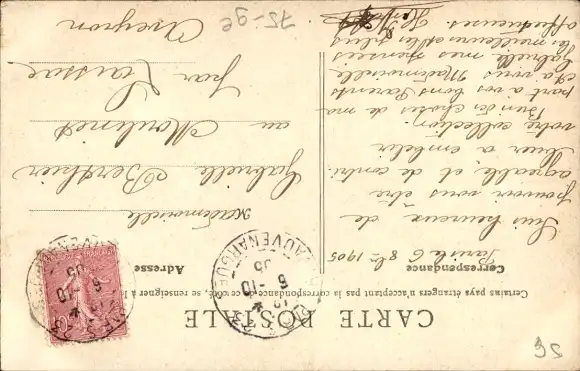 CARTE POSTALE
Certains pays étrangers n'acceptant pas la correspondance de ce côté, se renseigner à la
Correspondance
Adresse
Paris le 6 8bre 1905
Suis heureux de
pouvoir vous être
agréable, et de contri
buer à embellir
votre collection.
Bien des choses de ma
part à vos bons Parents
et à vous Mademoiselle
Gabrielle mes pensées
les meilleures et les plus
affectueuses.
Mademoiselle
Gabrielle Berthier
au Moulinet
par Laissac
Aveyron
75-9e
6 -10
05
95